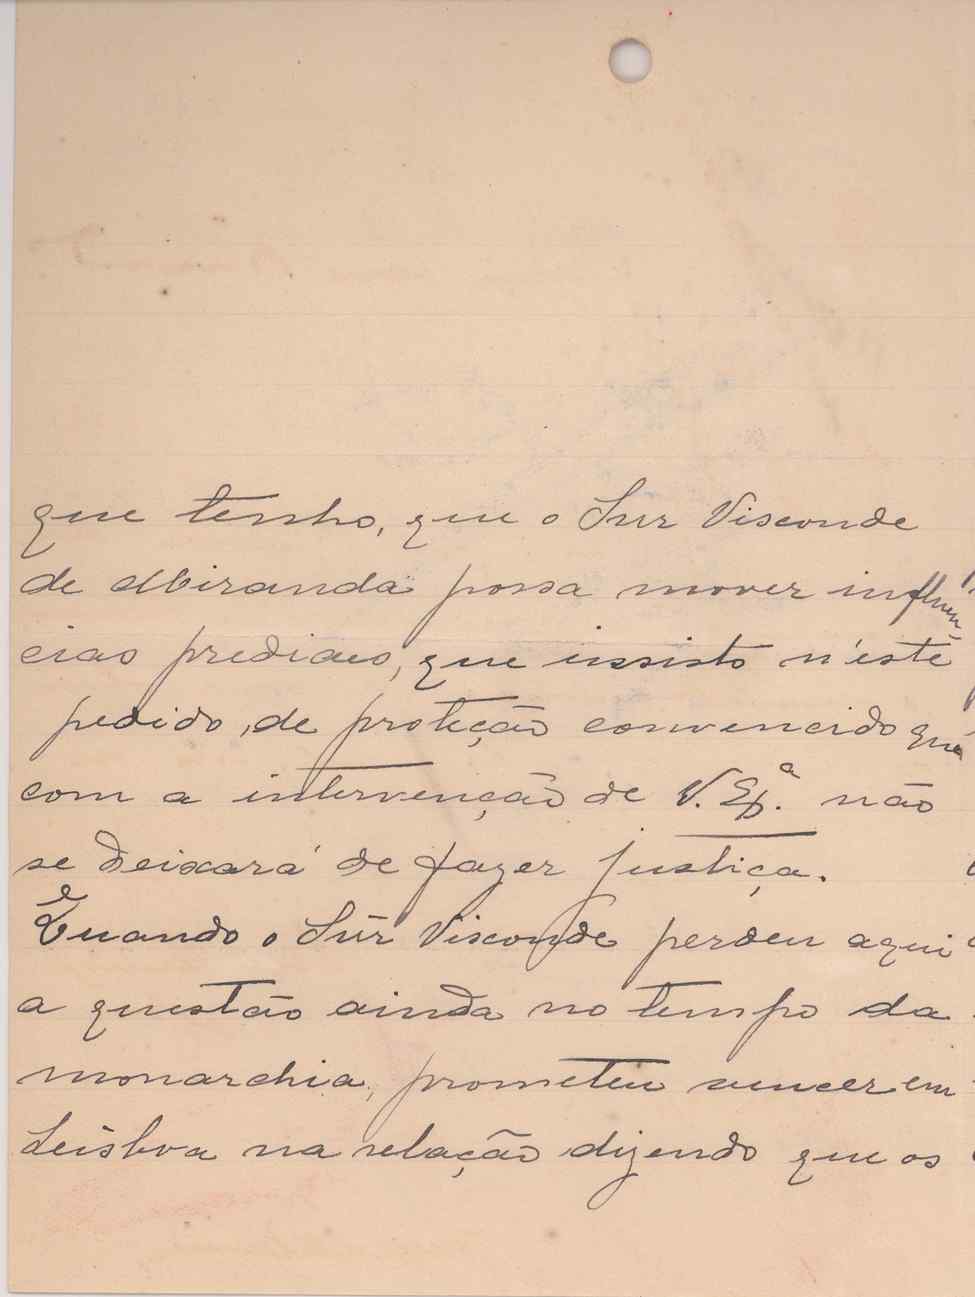 que tenho, que o Snr Visconde
de Miranda possa mover influen,
cias prediaes, que insisto n'éste
pedido, de proteção convencido que
com a intervenção de V. Exª. não
se deixará de fazer justiça.
Quando o Snr Visconde perdeu aqui
a questão ainda no tempo da
monarchia, prometeu vencer em
Lisboa na relação dizendo que os